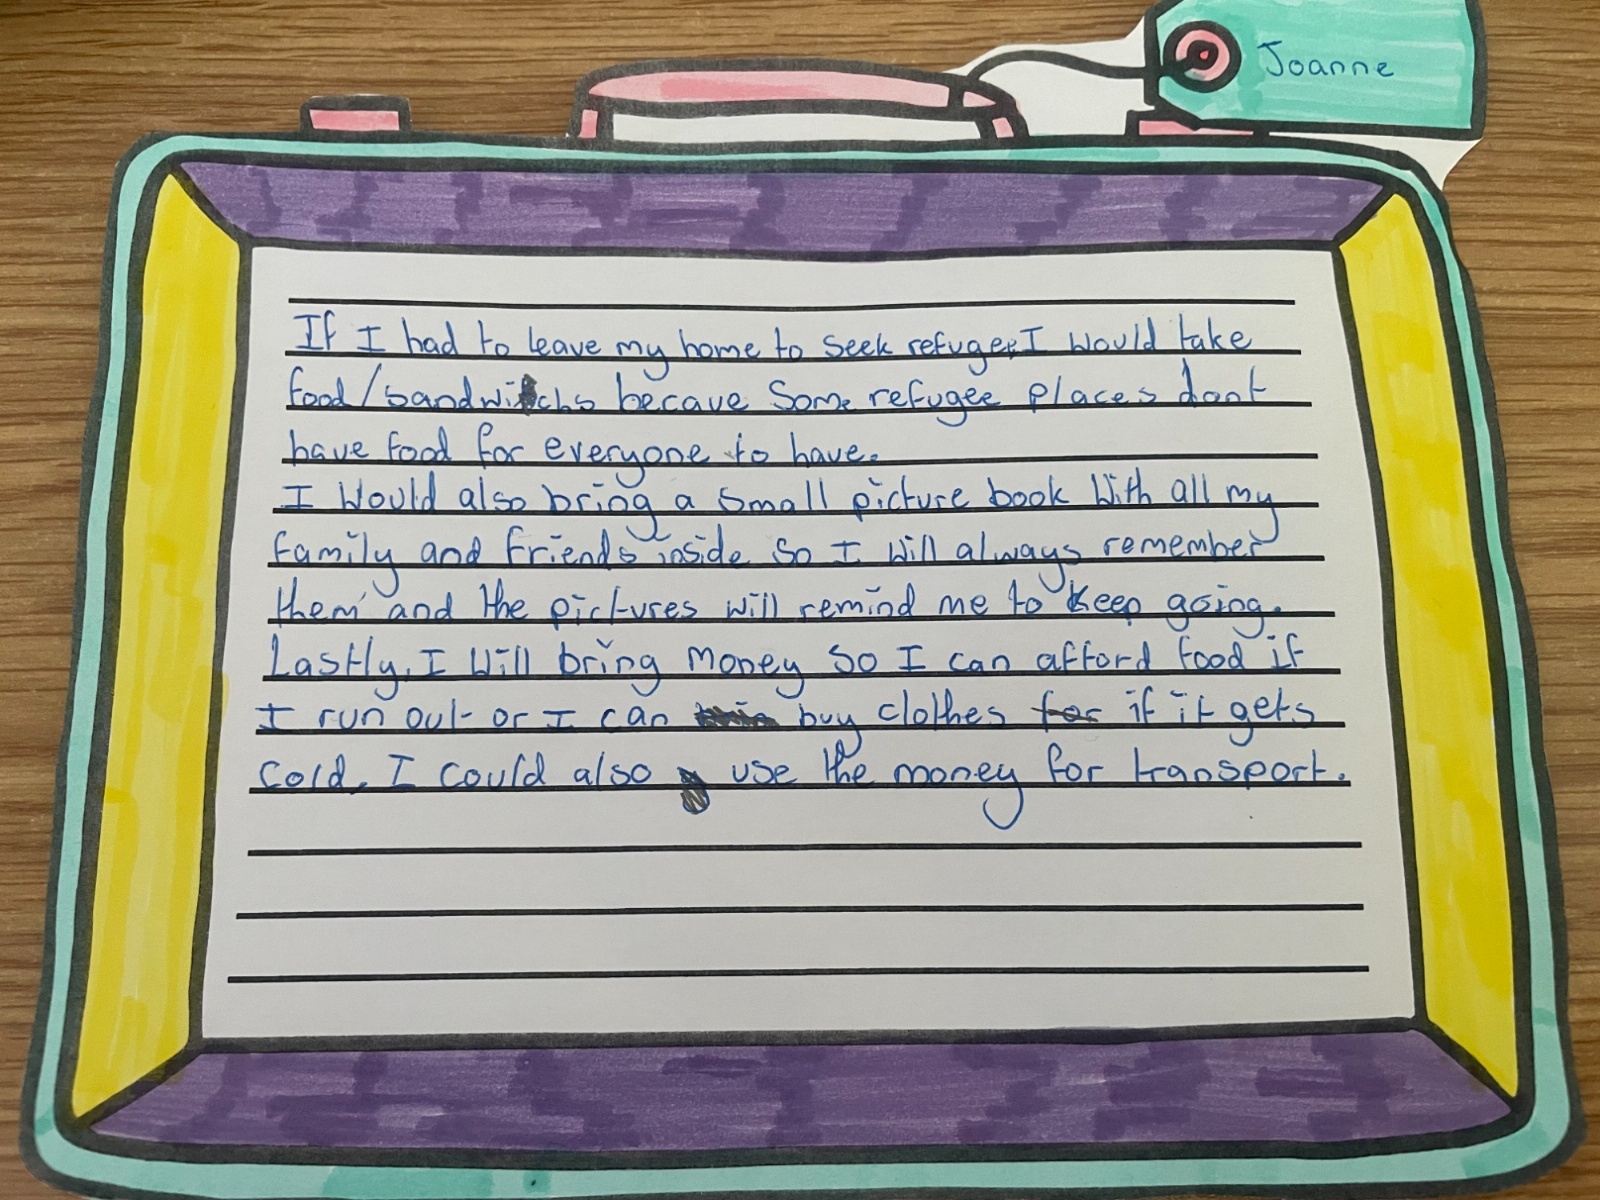 Joanne
If I had to leave my home to seek refuge, I would take
food/sandwichs becaue some refugee places dont
have food for everyone to have.
I would also bring a small picture book with all my
family and friends inside so I will always remember
them and the pictures will remind me to keep going.
Lastly, I will bring money so I can afford food if
I run out or I can buy clothes for if it gets
cold, I could also use the money for transport.